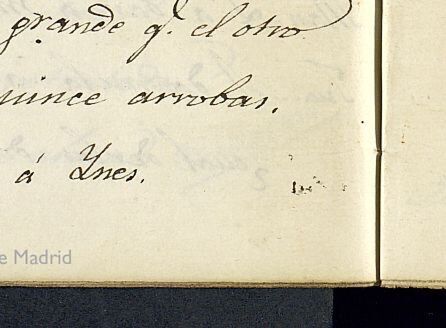 grande q.ᵉ el otro
uince arrobas.
á Ynes.
e Madrid